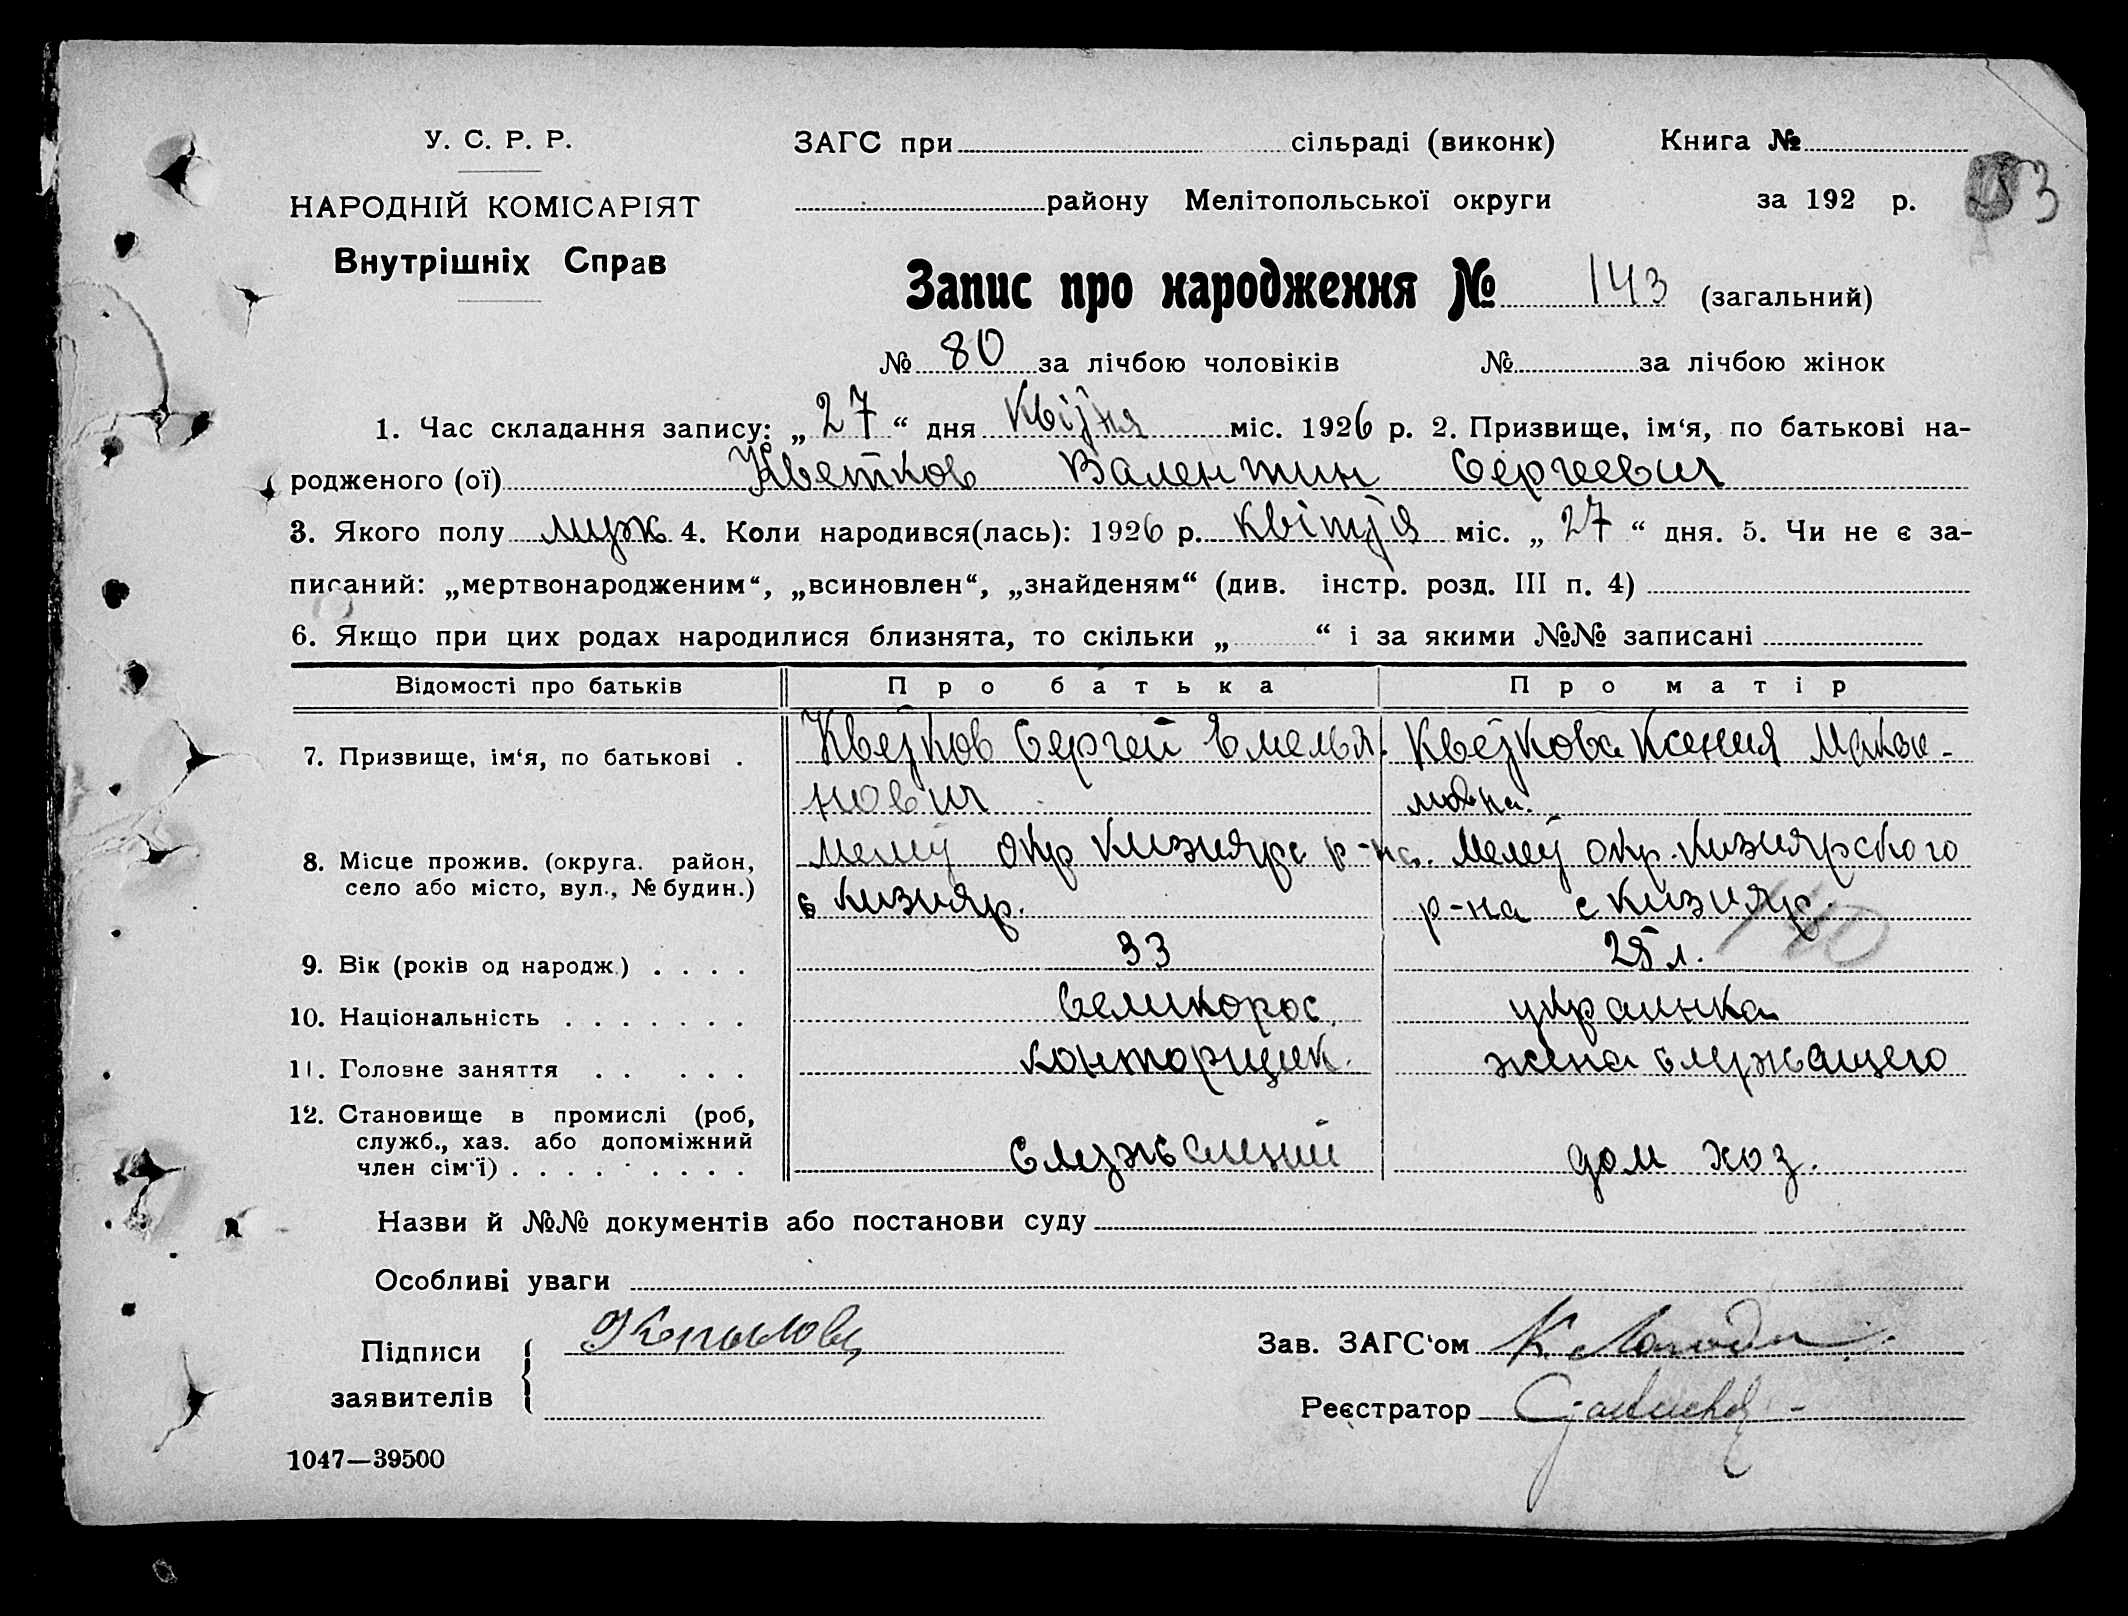 У. С. Р. Р.
НАРОДНІЙ КОМІСАРІЯТ
Внутрішніх Справ
ЗАГС при сільраді (виконк) Книга №
району Мелітопольської округи за 192 р.
Запис про народження № 143 (загальний)
№ 80 за лічбою чоловіків № за лічбою жінок
1. Час складання запису: „27“ дня Квітня міс. 1926 р. 2. Призвище, ім‘я, по батькові на-
родженого (ої) Кветков Валентин Сергеевич
3. Якого полу муж 4. Коли народився(лась): 1926 р. квітня міс. „27“ дня. 5. Чи не є за-
писаний: „мертвонародженим“, „всиновлен“, „знайденям“ (див. інстр. розд. III п. 4)
6. Якщо при цих родах народилися близнята, то скільки „ “ і за якими №№ записані
Відомості про батьків Про батька Про матір
7. Призвище, ім‘я, по батькові . Кветков Сергей Емелья Кветкова Ксения
нович
8. Місце прожив. (округа. район, Мелит окр Кизиярс р-на. Мелит окр. Кизиярского
село або місто, вул., № будин.) с Кизияр. р-на с Кизияр.
9. Вік (років од народж.) . . . . 33 25 л.
10. Національність . . . . . . . великорос. украинка
11. Головне заняття . . . . . конторщик. жена служащего
12. Становище в промислі (роб,
служб., хаз. або допоміжний
член сім‘ї) . . . . . . . . . служащий дом хоз.
Назви й №№ документів або постанови суду
Особливі уваги
Підписи
заявителів
Зав. ЗАГС‘ом
Реєстратор
1047—39500